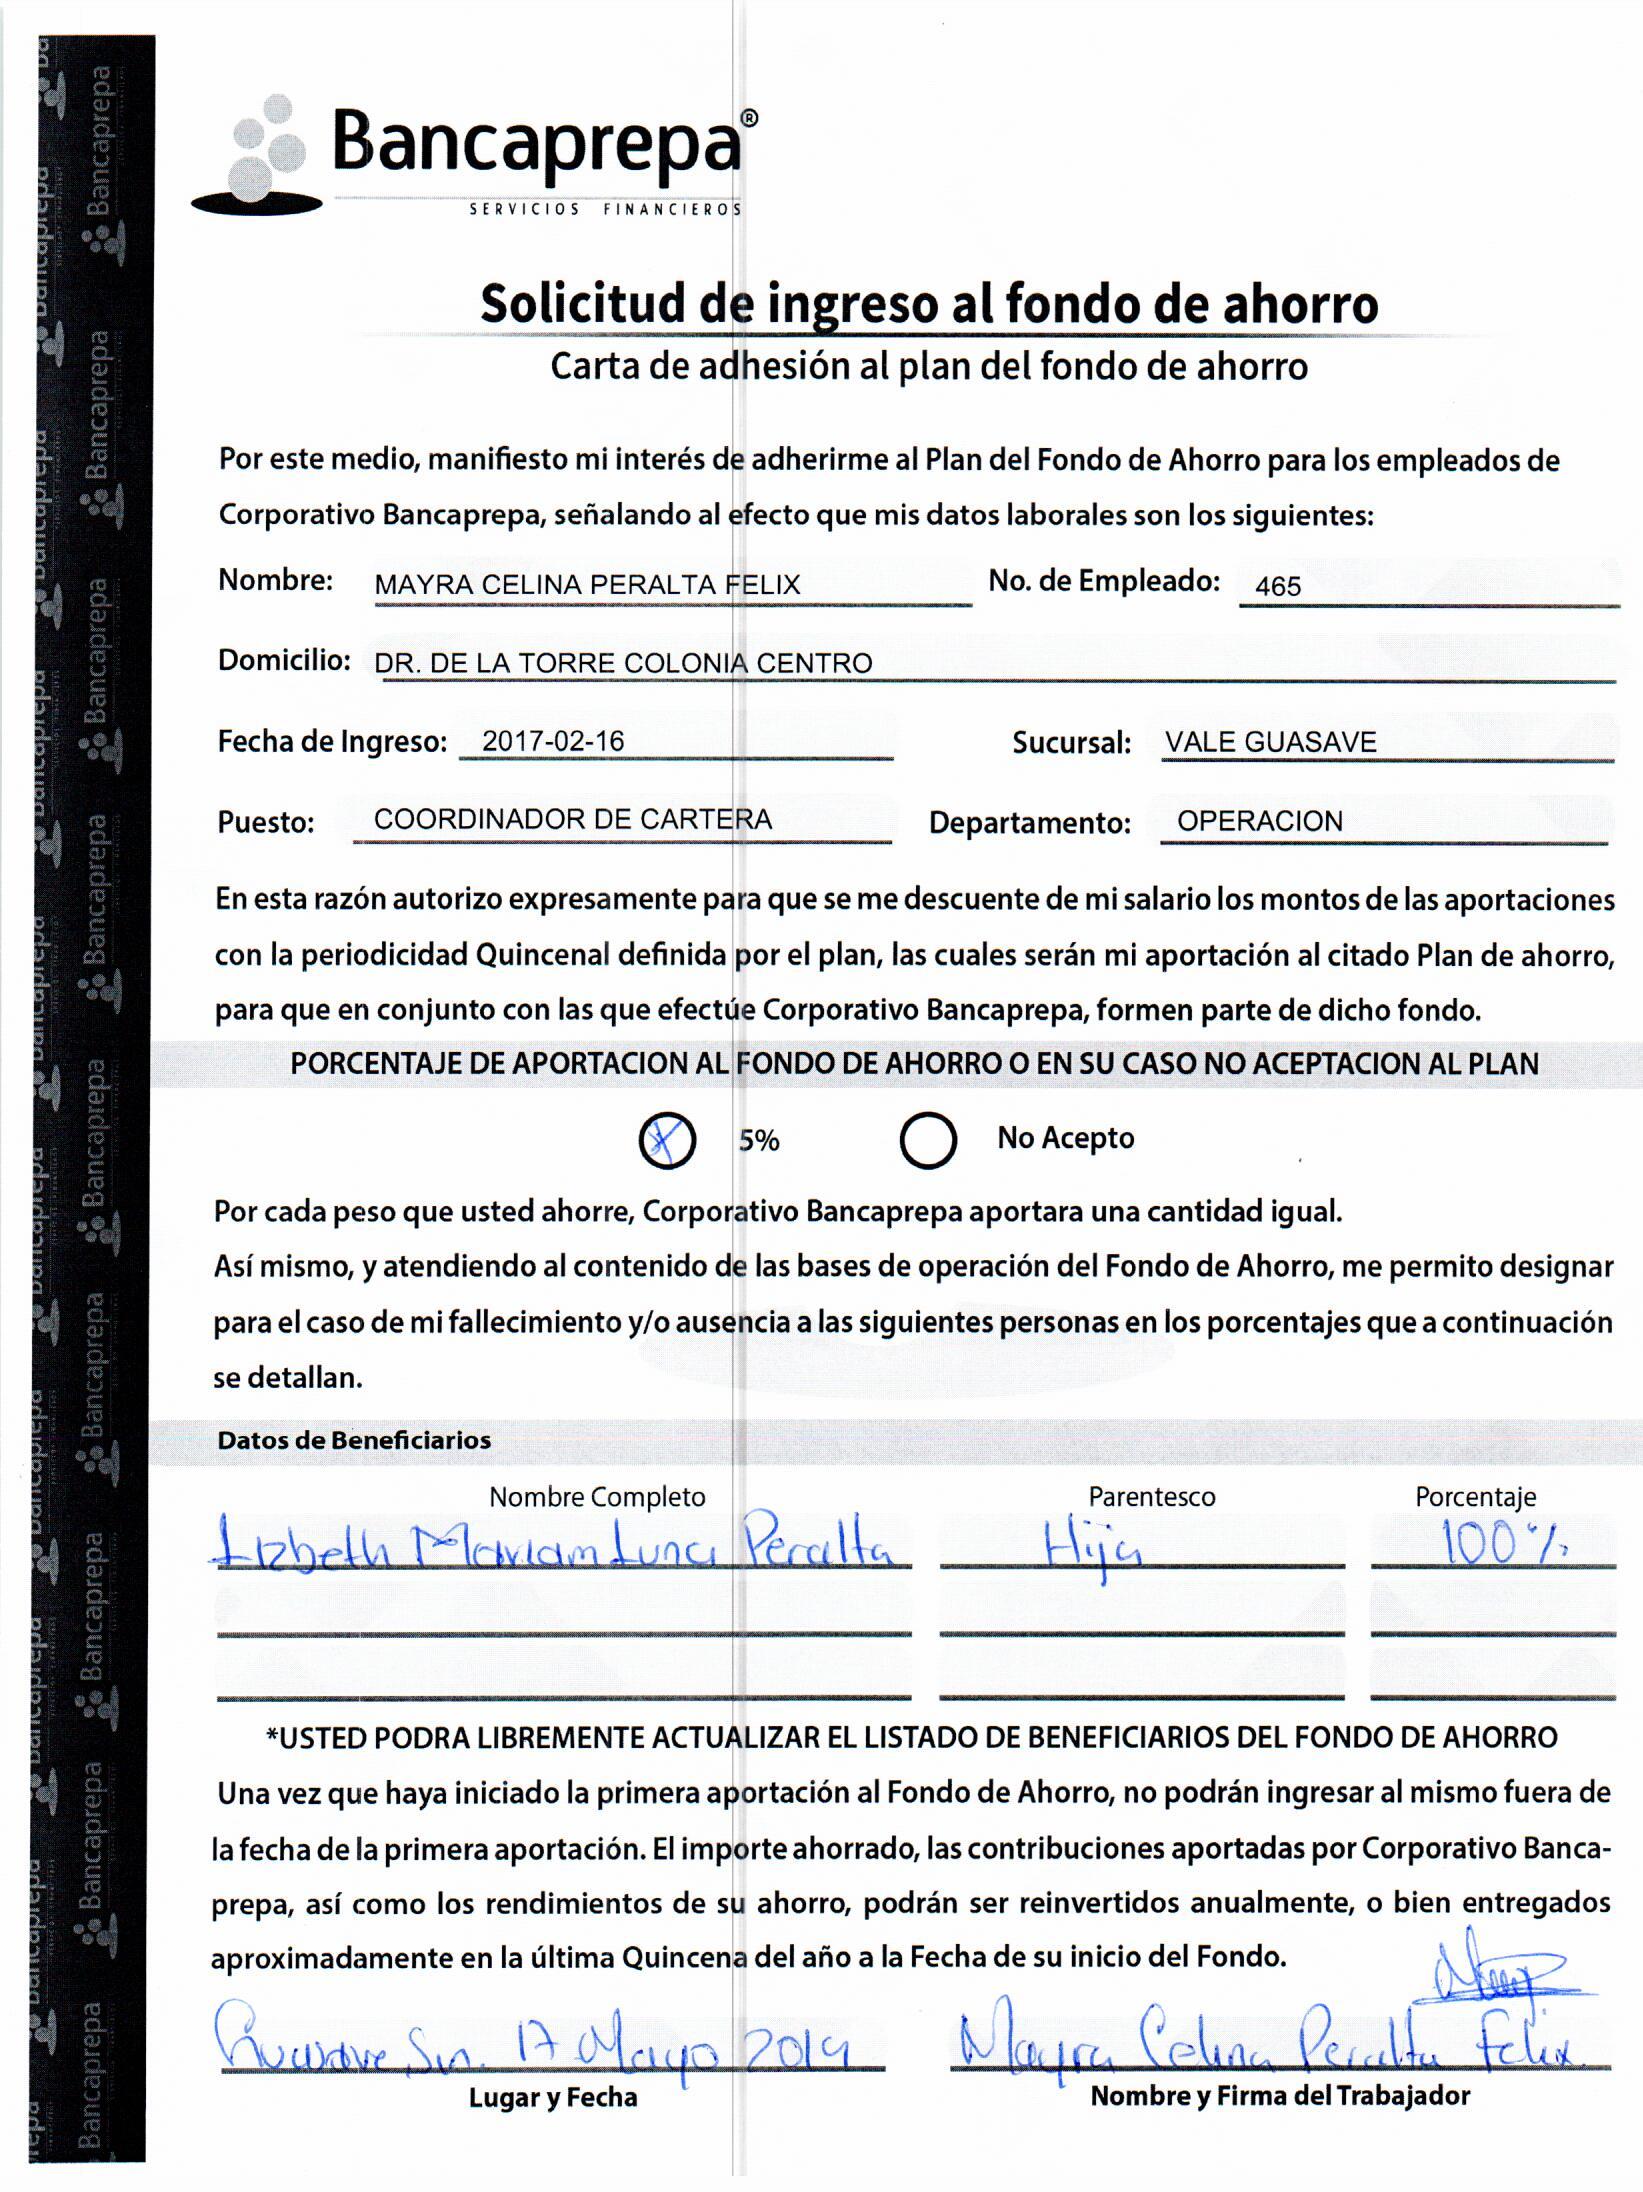 Bancaprepa®
SERVICIOS FINANCIEROS
Solicitud de ingreso al fondo de ahorro
Carta de adhesión al plan del fondo de ahorro
Por este medio, manifiesto mi interés de adherirme al Plan del Fondo de Ahorro para los empleados de
Corporativo Bancaprepa, señalando al efecto que mis datos laborales son los siguientes:
Nombre: MAYRA CELINA PERALTA FELIX No. de Empleado: 465
Domicilio: DR. DE LA TORRE COLONIA CENTRO
Fecha de Ingreso: 2017-02-16 Sucursal: VALE GUASAVE
Puesto: COORDINADOR DE CARTERA Departamento: OPERACION
En esta razón autorizo expresamente para que se me descuente de mi salario los montos de las aportaciones
con la periodicidad Quincenal definida por el plan, las cuales serán mi aportación al citado Plan de ahorro,
para que en conjunto con las que efectúe Corporativo Bancaprepa, formen parte de dicho fondo.
PORCENTAJE DE APORTACION AL FONDO DE AHORRO O EN SU CASO NO ACEPTACION AL PLAN
5% No Acepto
Por cada peso que usted ahorre, Corporativo Bancaprepa aportara una cantidad igual.
Así mismo, y atendiendo al contenido de las bases de operación del Fondo de Ahorro, me permito designar
para el caso de mi fallecimiento y/o ausencia a las siguientes personas en los porcentajes que a continuación
se detallan.
Datos de Beneficiarios
Nombre Completo Parentesco Porcentaje
Lizbeth Mariam Luna Peralta Hija 100%
*USTED PODRA LIBREMENTE ACTUALIZAR EL LISTADO DE BENEFICIARIOS DEL FONDO DE AHORRO
Una vez que haya iniciado la primera aportación al Fondo de Ahorro, no podrán ingresar al mismo fuera de
la fecha de la primera aportación. El importe ahorrado, las contribuciones aportadas por Corporativo Banca-
prepa, así como los rendimientos de su ahorro, podrán ser reinvertidos anualmente, o bien entregados
aproximadamente en la última Quincena del año a la Fecha de su inicio del Fondo.
Guasave, Sin. 17 Mayo 2019 Mayra Celina Peralta Felix.
Lugar y Fecha Nombre y Firma del Trabajador